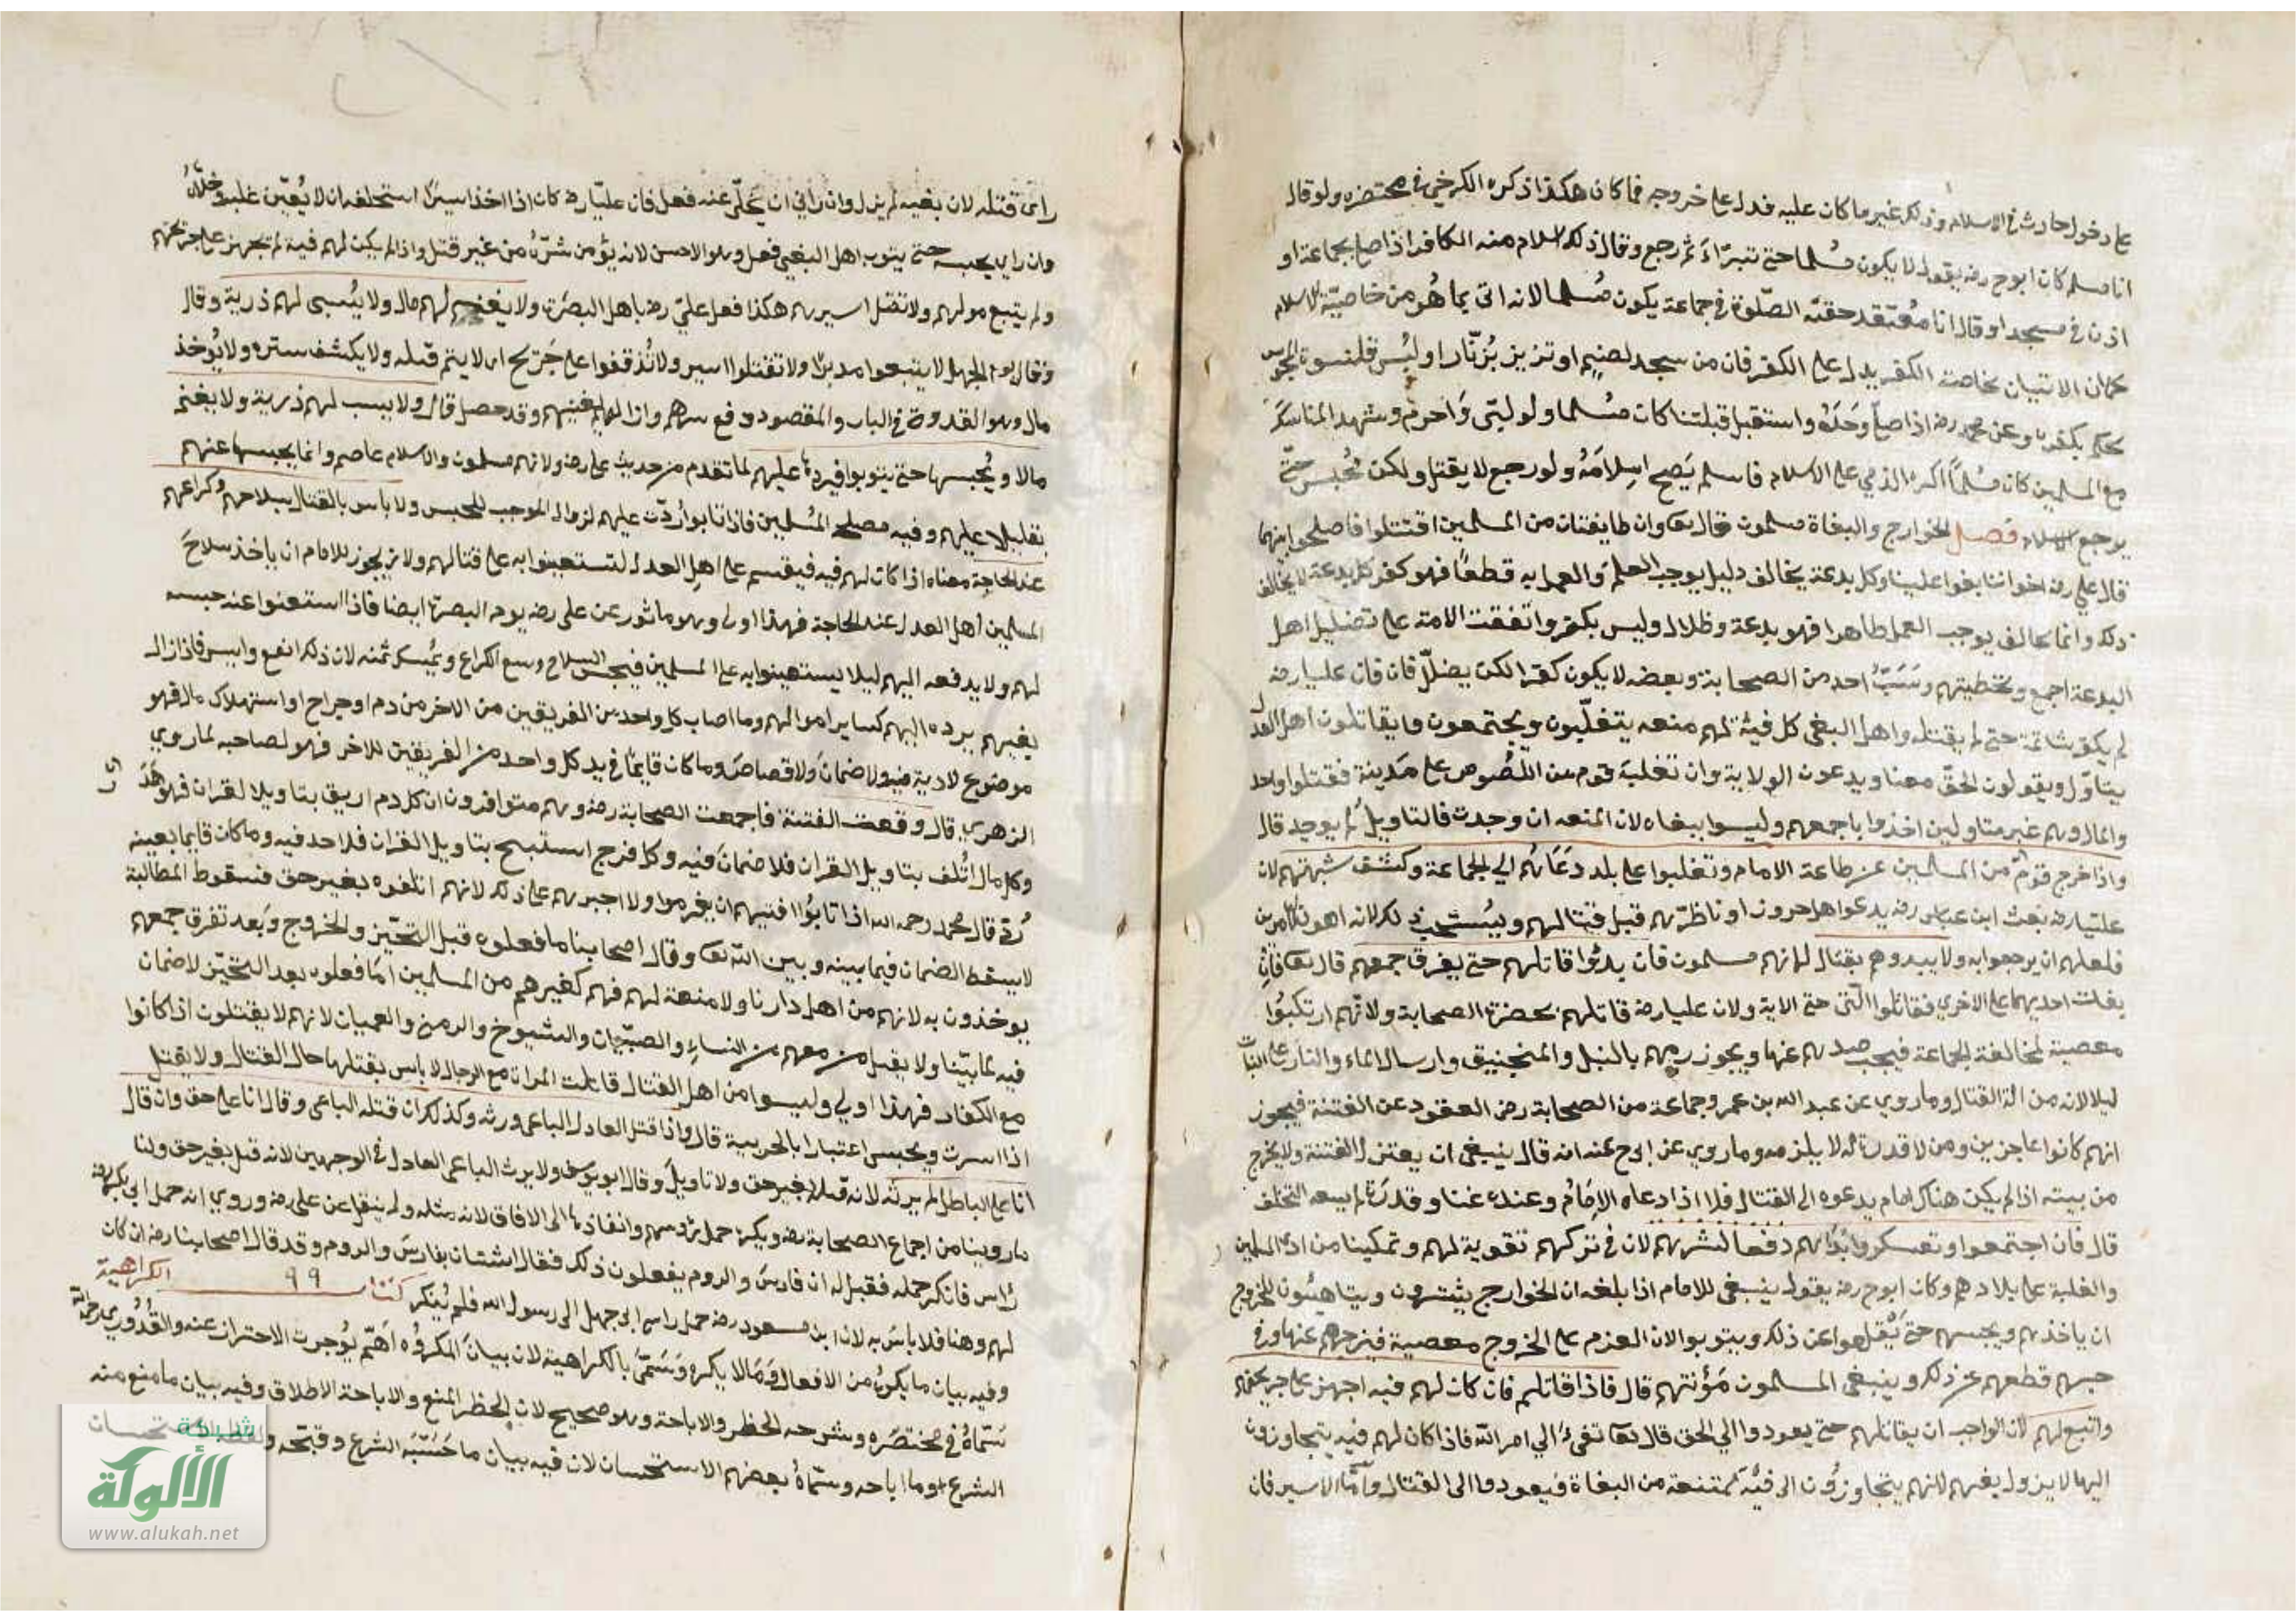 على دخول حادث في الاسلام وذلك غير ما كان عليه فدل على خروجه مما كان هكذا ذكره الكرخي في مختصره ولو قال
انا مسلم كان ابو ح رضه يقول لا يكون مسلما حتى تتبرّاءَ ثم رجع وقال ذلك اسلام منه الكافر اذا صلى بجماعة او
اذن في مسجد او قال انا معتقد حقيّة الصّلوة في جماعة يكون مُسلما لانه اتى بما هُو من خاصيّة الاسلام
كما ان الاتيان بخاصة الكفر يدل على الكفر فان من سجد لصنم او تزيز بزنّار او لبس قلنسوة المجوس
يحكم بكفره وعن محمد رضه اذا صلى وحدَهُ واستقبل قبلتنا كان مسلما ولو لبّى وَاحرم وشهد المناسك
مع المسلمين كان مُسلماً اكره الذمي على الاسلام فاسلم يَصح اسِلامَهُ ولو رجع لا يقتل ولكن يُحبس حتّى
يرجع فصل الخوارج والبغاة مسلمون قال تعا وان طايفتان من المسلمين اقتتلوا فاصلحوا بينهما
قال علي رضه اخواننا بغوا علينا وكل بدعة يخالف دليل يوجب العلمَ والعمل به قطعاً فهو كفر كل بدعة لا يخالف
ذلك وانما يخالف يوجب العمل ظاهرا فهو بدعة وظلال وليس بكفر واتفقت الامة على تضليل اهل
البدعة اجمع وتخطيتهم وسَبُّ احد من الصحابة وبعضه لا يكون كفرا لكن يضلّل فان علياً رضه
لم يكفر شاتمه حتى لم يقتله واهل البغى كل فية لهم منعه يتغلّبون ويجتمعون ويقاتلون اهل العدل
بتاوّل ويقولون الحقّ معنا ويدعون الولاية وان تغلبَ قوم من اللّصُوص على مَدينة فقتلوا واخذ
والمال وهم غير متاولين اخذوا باجمعهم وليسوا ببغاه لان المنعه ان وجدت فالتاويل لم يوجد قال
واذا خرج قومٌ من المسلمين عن طاعة الامام وتغلبوا على بلد دعَاهُم الي الجماعة وكشف شبهتهم لان
عليّا رضه بعث ابن عباس رضه يدعوا اهل حرورا وناظرَهم قبل قتالهم ويُستحب ذلك لانه اهون الامرين
فلعلهم ان يرجعوا به ولا يبدوهم بقتال لانهم مسلمون فان بدئوا قاتلهم حتى يفرق جمعهم قال تعا فان
بغت احديهما على الاخري فقاتلوا الّتى حتى الاية ولان عليا رضه قاتلهم بحضرة الصحابة ولانّهم ارتكبوُا
معصية لمخالفة الجماعة فيجب صدهم عنها ويجوز رميهم بالنبل والمنجنيق وارسال الماء والنار على البيات
ليلا لانه من الة القتال وما روي عن عبد الله بن عمر وجماعة من الصحابة رضه القعود عن الفتنة فيجوز
انهم كانوا عاجزين ومن لا قدرة له لا يلزمه وما روي عن ابي ح عنه انه قال ينبغى ان يعتزل الفتنة ولا يخرج
من بيته اذا لم يكن هناك امام يدعوه الى القتال فلا اذا دعاه الإمَامُ وعنده غنا وقدرة لم يسعه التخلف
قال فان اجتمعوا وتعسكروا بدَاهم دفعاً لشرهم لان في تركهم تقوية لهم وتمكينا من اذى المسلمين
والغلبة على بلادهم وكان ابو ح رضه يقول ينبغى للامام اذا بلغه ان الخوارج يشترون ويتاهبُون للخروج
ان ياخذهم ويحبسهم حتى يقلعوا عن ذلك ويتوبوا لان العزم على الخروج معصية فيزجرهم عنها وفي
حبسهم قطعهم عن ذلك وينبغي المسلمون مَؤنتهم قال فاذا قاتلهم فان كان لهم فية اجهز على جريحهم
واتبع لهم لان الواجب ان يقاتلهم حتى يعودوا الي الحق قال تعا تفىءَ الي امر الله فاذا كان لهم فية يتجاوزون
اليها لا يزول بغيهم لانهم يتجاوزُون الى فيُة ممتنعة من البغاة فيعودوا الى القتال وامّا الاسير فان
راى قتله لان بغيه لم يزل وان رأي ان يُخلّى عنه فعل فان عليّا رضه كان اذا اخذ اسيراً استحلفه ان لا يُعيّن عليه وخلّاهُ
وان راي يحبسه حتى يتوب اهل البغي فعل وهو الاحسن لانه يؤمن شرّهُ من غير قتل واذا لم يكن لهم فية لم تجهز على جريحهم
ولم يتبع موليهم ولا تقتل اسيرهم هكذا فعل عليّ رضه باهل البصرة ولا يغنم لهم مال ولا يُسبى لهم ذرية وقال
وقال يوم الجمل لا يتبعوا مدبرًا ولا تقتلوا اسير ولا تُذقفوا على جَريح اى لا يتم قتله ولا يكشف ستره ولا يُوخذ
مال وهو القدوة في الباب والمقصود دفع شرهم وازالة بغيهم وقد حصل قال ولا يسب لهم ذرية ولا يغنم
مالا ويُحبسها حتى يتوبوا فيردها عليهم لما تقدم من حديث على رضه ولانهم مسلمون والاسلام عاصم وانما يحبسها عنهم
تقليلا عليهم وفيه مصلحة المُسلمين فاذا تابوا رُدّت عليهم لزوال الموجب للحبس ولا باس بالقتال بسلاحهم وكراعهم
عند الحاجة معناه اذا كان لهم فية فيقسم على اهل العدل لتستعينوا به على قتالهم ولانه يجوز للامام ان ياخذ سلاحَ
المسلمين اهل العدل عند الحاجة فهذا اولى وهو ماثور عن على رضه يوم البصرة ايضا فاذا استغنوا عنه حبسه
لهم ولا يدفعه اليهم ليلا يستعينوا به على المسلمين فيحبس السلاح وبيع الكراع ويُمسك ثمنه لان ذلك انفع وايسر فاذا زال
بغيهم يرده اليهم كساير اموالهم وما اصاب كل واحد من الفريقين من الاخر من دم او جراح او استهلاك مال فهو
موضوع لا دية فيه ولا ضمانَ ولا قصاصَ وما كان قايمًا في يد كل واحد من الفريقين للاخر فهو لصاحبه لما روي
الزهري قال وقعت الفتنة فاجمعت الصحابة رضه وهم متوافرون ان كل دم اريق بتاويلا لقران فهو هَدَر
وكل مال اتُلف بتاويل القران فلا ضمانَ فيه وكل فرج استبيح بتاويل القران فلا حد فيه وما كان قايما بعينه
رُدّ قال محمد رحمه الله اذا تابُوا افتيهم ان يغرموا ولا اجبرهم على ذلك لانهم اتلفوه بغير حق فسقوط المطالبة
لا يسقط الضمان فيما بينه وبين الله تعا وقال اصحابنا ما فعلوه قبل التحيّز والخروج وبَعد تفرق جمعهم
يوخذون به لانهم من اهل دارنا ولا منعة لهم فهم كغيرهم من المسلمين امَا فعلوه بعد التحيّز لا ضمان
فيه لما بيّنا ولا يقتل من معهم من النساءِ والصبّيان والشيوخ والزمن والعميان لانهم لا يقتلون اذا كانوا
مع الكفار فهذا اولي وليسوا من اهل القتال قاتلت المراة مع الرجال لا باس بقتلها حال القتال ولا يقتل
اذا اسرت ويحبس اعتبارا بالحربية قال واذا قتل العادل الباغى ورثه وكذلك ان قتله الباغى وقال انا على حق وان قال
انا على الباطل لم يرثه لانه قتله بغير حق ولا تاويلَ وقال ابو يوسف ولا يرث الباغى العادل في الوجهين لانه قتل بغير حق ولنا
ما روينا من اجماع الصحابة رضه ويكره حمل رؤسهم وانفاذها الى الافاق لانه مثله ولم ينقل عن على رضه وروي انه حمل الى ابي بكر رضه
رأس فانكر حمله فقيل له ان فارسَ والروم يفعلون ذلك فقال استنان بفارسَ والروم وقد قال اصحابنا رضه ان كان
لهم وهنا فلا باسَ به لان ابن مسعود رضه حمل راس ابي جهل الى رسول الله فلم يُنكر كتاب ٩٩ الكراهية
وفيه بيان ما يكره من الافعال وَمَالا يكره وَسَمّىَ بالكراهية لان بيانَ المَكروُه اَهَمّ يوُجوب الاحتراز عنه والقُدُوري رحمه الله
سَمّاهُ في مختصَره وشرحه الحظر والاباحة وهو صحيح لان الحظر المنع والاباحة الاطلاق وفيه بيان ما منع منه
الشرع وما اباحه وسمّاهُ بعضهم الاستحسان لان فيه بيان ما حَسّنَه الشرع وقبّحَه
شبكة
الألوكة
www.alukah.net